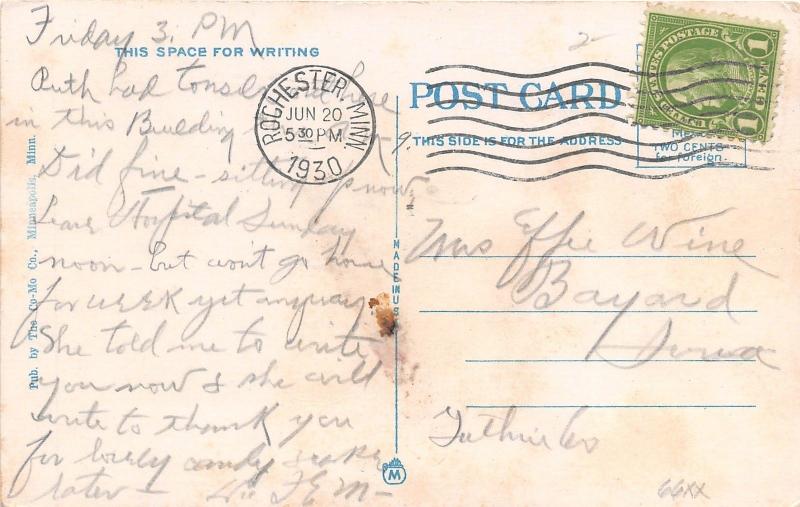 Friday 3. PM
THIS SPACE FOR WRITING
Ruth had tonsels out here
in this Building
Did fine - sitting up now
Leave Hospital Sunday
noon - but won't go home
for WEEK yet anyway
She told me to write
you now & she will
write to thank you
for lovely candy
later -
Pub. by The Co-Mo Co., Minneapolis, Minn.
MADE IN U.S.
M
ROCHESTER, MINN.
JUN 20
5 30 PM
1930
POST CARD
THIS SIDE IS FOR THE ADDRESS
TWO CENTS
for foreign.
1
1
Mrs Effie Wine
Bayard
Iowa
Guthrie Co
66XX